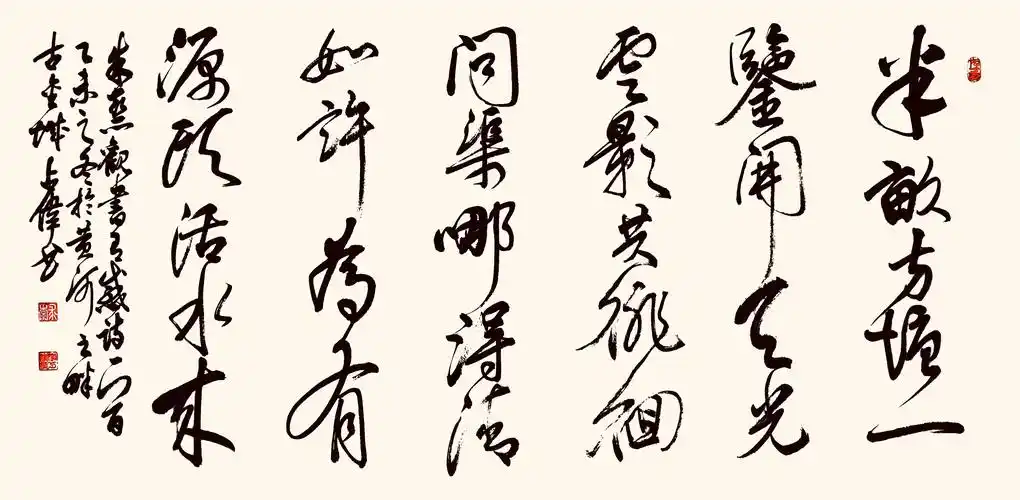 半畝方塘一
鑒開天光
雲影共徘徊
問渠哪得清
如許為有
源頭活水來
朱熹觀書有感詩一首
乙未之冬於黃河之畔
古金城偉書